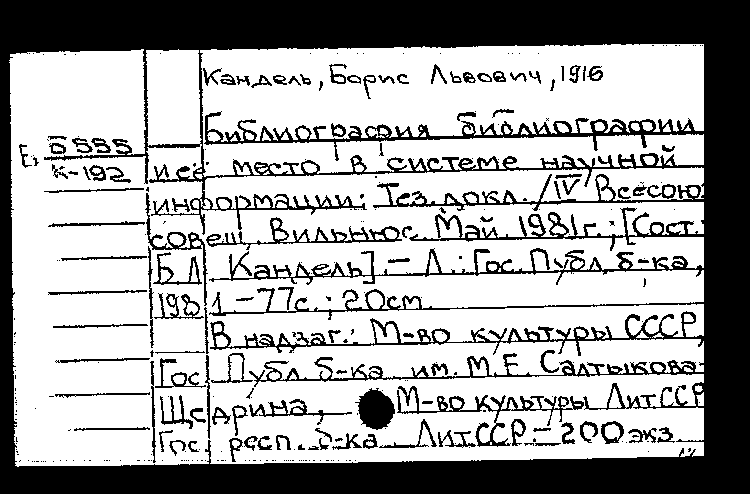 Кандель, Борис Львович, 1916
Библиография библиографии
Б 555
К-192
и её место в системе научной
информации: Тез. докл. / IV Всесоюз.
совещ. Вильнюс. Май. 1981г.; [Сост.:
Б.Л. Кандель]. – Л.: Гос. Публ. б-ка,
1981 – 77с.; 20см.
В надзаг.: М-во культуры СССР,
Гос. Публ. б-ка им. М.Е. Салтыкова-
Щедрина, М-во культуры ЛитССР
Гос. респ. б-ка ЛитССР. – 200 экз.